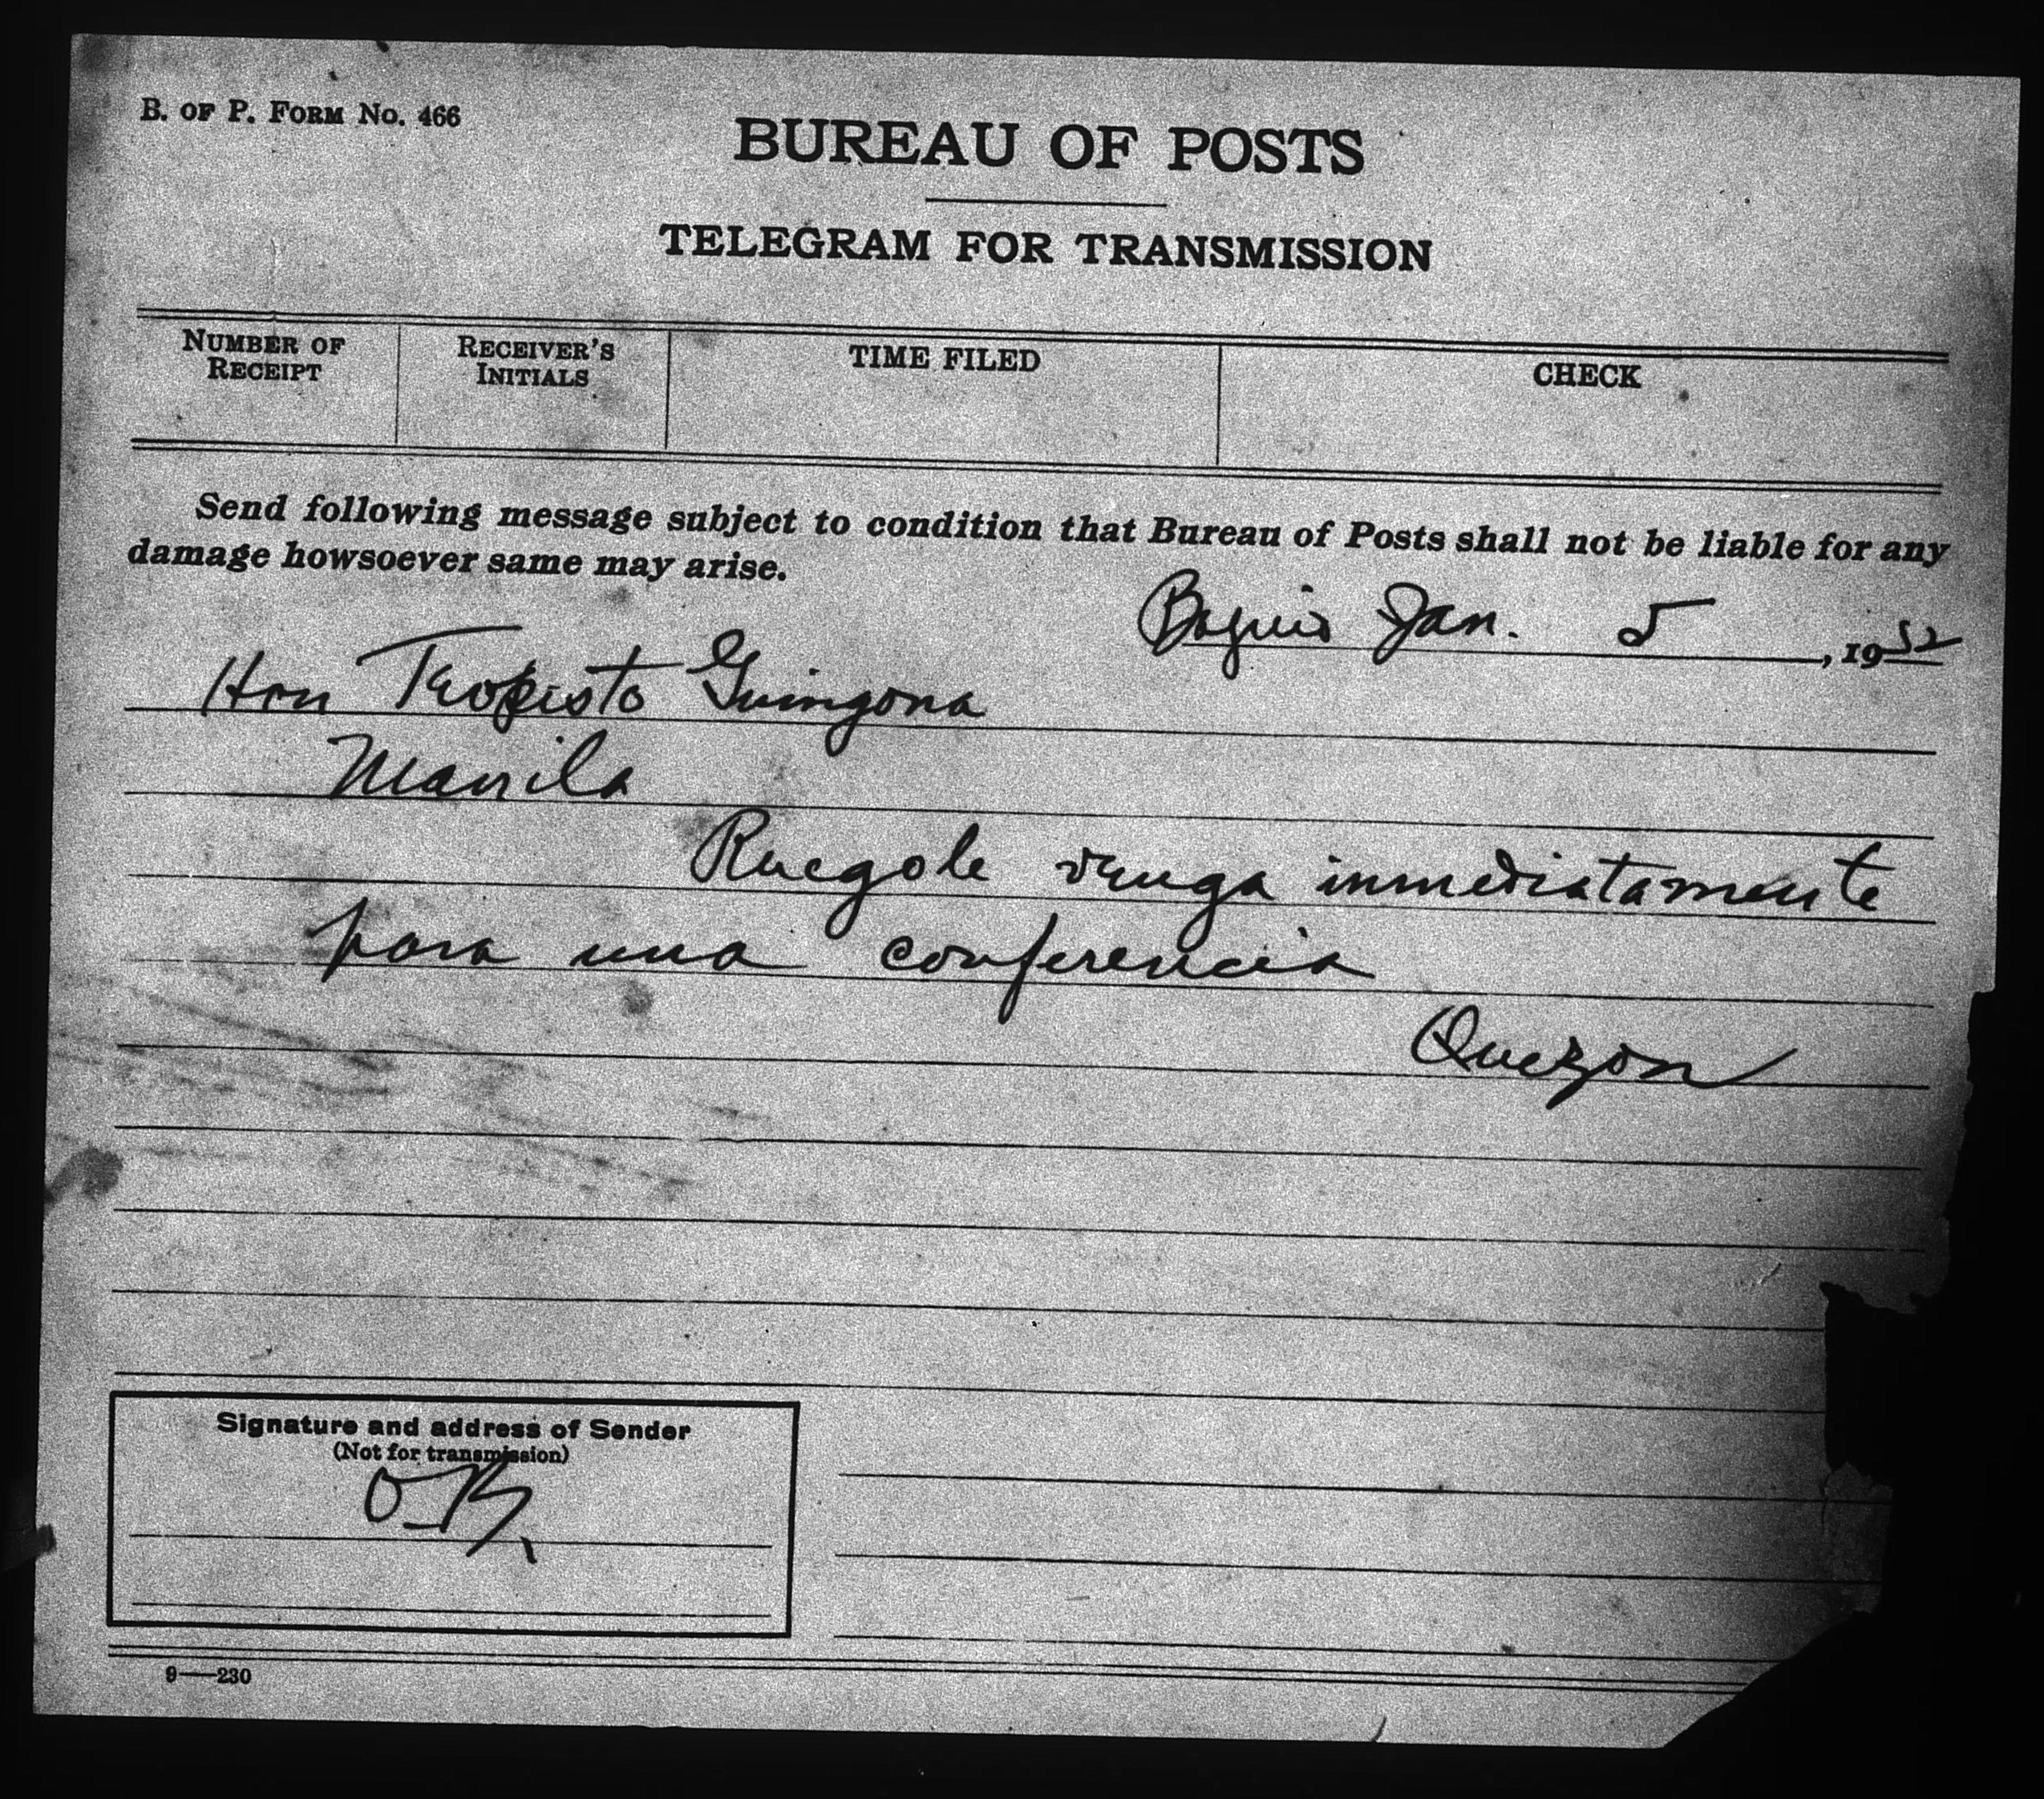 B. OF P. FORM NO. 466
BUREAU OF POSTS
TELEGRAM FOR TRANSMISSION
NUMBER OF RECEIPT RECEIVER'S INITIALS TIME FILED CHECK
Send following message subject to condition that Bureau of Posts shall not be liable for any
damage howsoever same may arise.
Baguio Jan. 5, 1932
Hon Teopisto Guingona
Manila
Ruegole venga inmediatamente
para una conferencia
Quezon
Signature and address of Sender
(Not for transmission)
O.K.
9—230